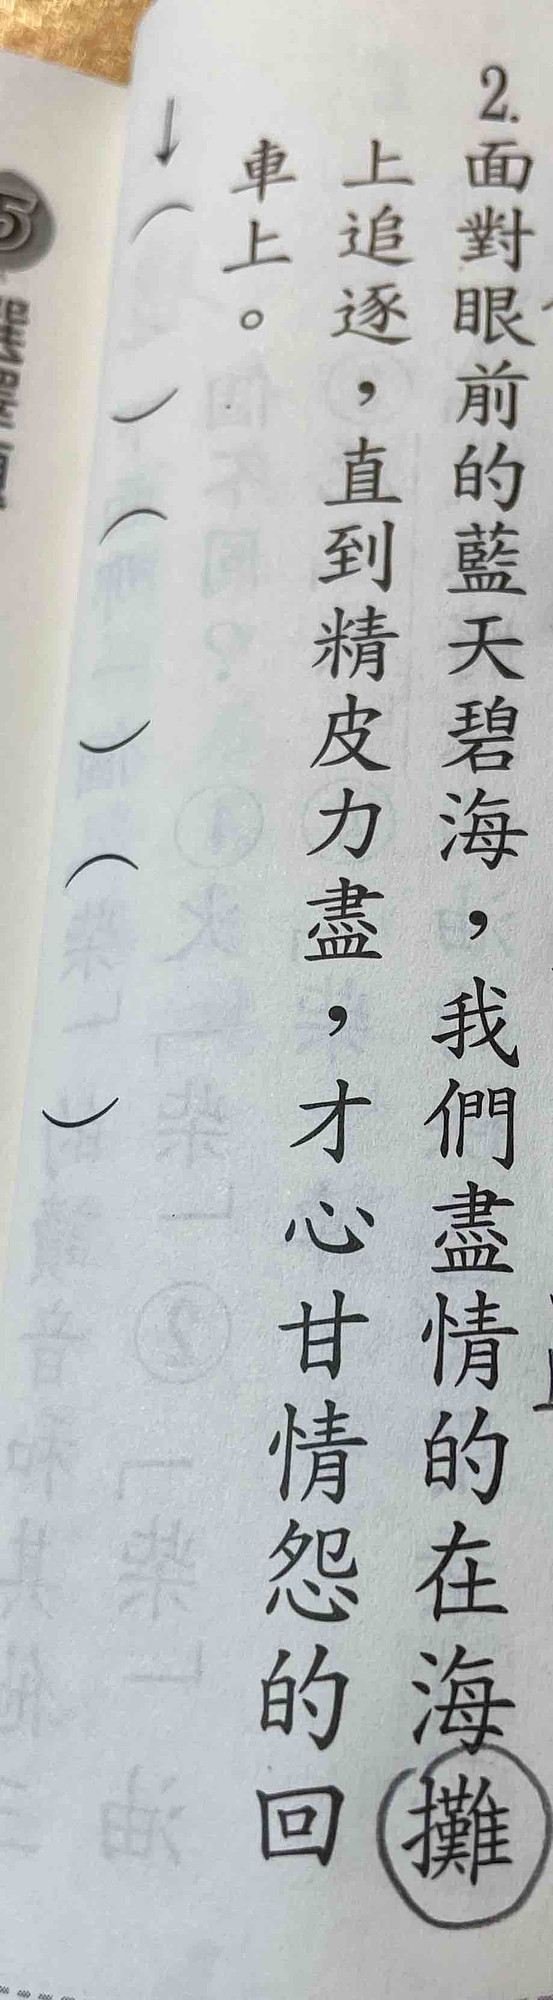 2.面對眼前的藍天碧海，我們盡情的在海攤
上追逐，直到精皮力盡，才心甘情怨的回
車上。
↓（　）（　）（　）
5